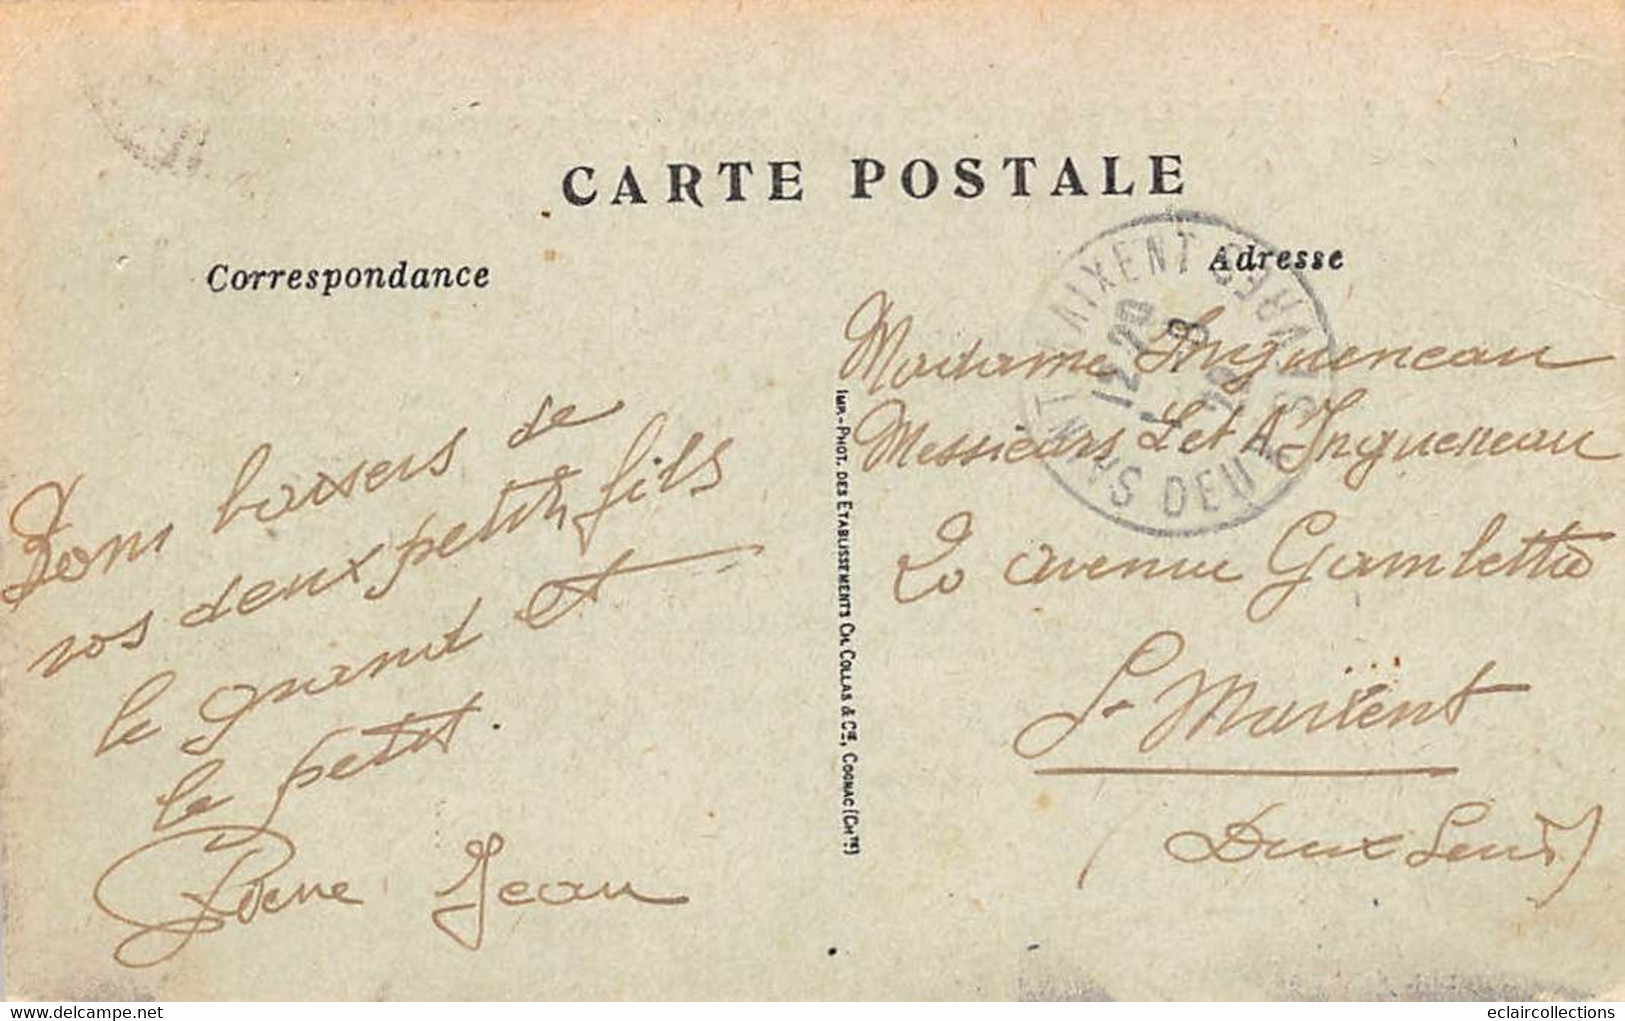 CARTE POSTALE
Correspondance
Adresse
Bons baisers de
vos deux petits fils
le grand et
le petit.
Pierre Jean
IMP.-PHOT. DES ETABLISSEMENTS CH. COLLAS & Cie, COGNAC (CHte)
SAINT MAIXENT DEUX SEVRES
12 20
8
Madame Ingueneau
Messieurs L et A Ingueneau
20 avenue Gambetta
St Maixent
(Deux Sevres)
www.delcampe.net
eclaircollections